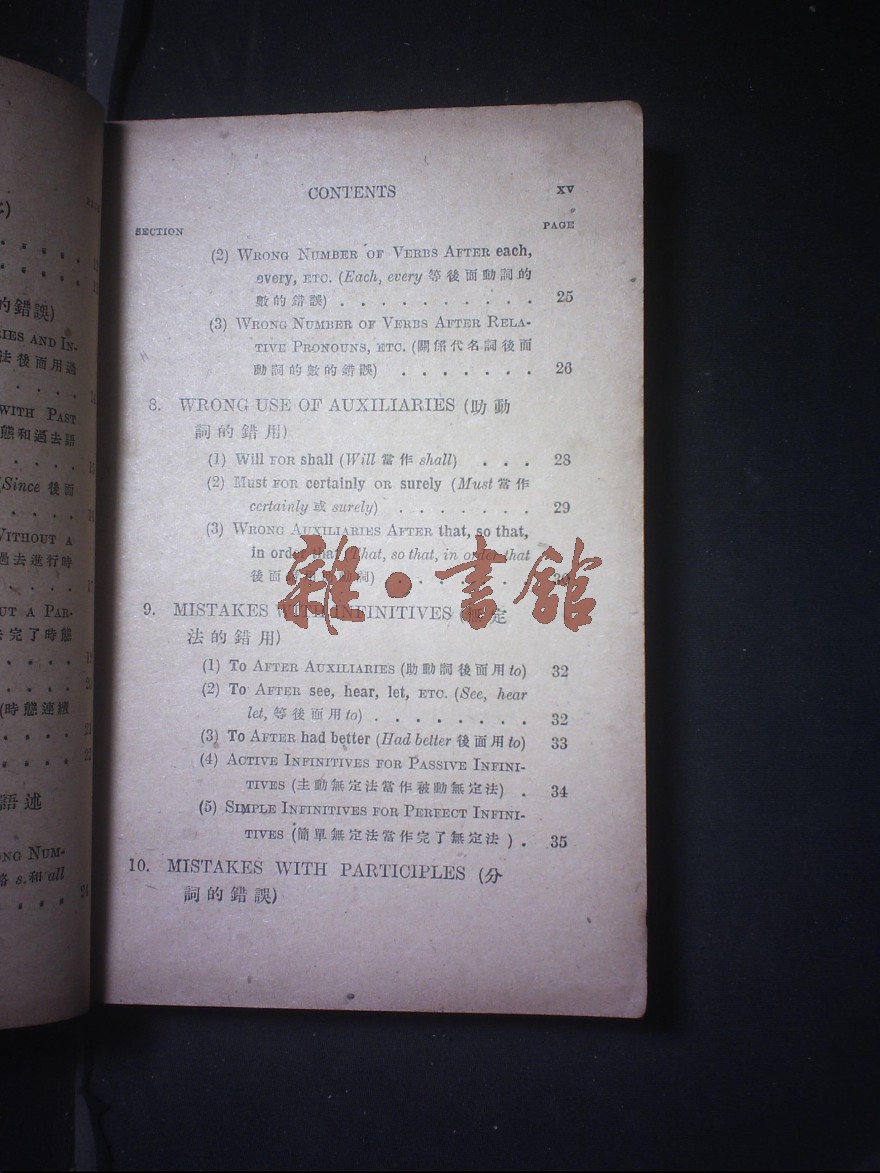 CONTENTS xv
SECTION PAGE
(2) WRONG NUMBER OF VERBS AFTER each,
every, ETC. (Each, every 等後面動詞的
數的錯誤) . . . . . . . . . . 25
(3) WRONG NUMBER OF VERBS AFTER RELA-
TIVE PRONOUNS, ETC. (關係代名詞後面
動詞的數的錯誤) . . . . . . . 26
8. WRONG USE OF AUXILIARIES (助動
詞的錯用)
(1) Will FOR shall (Will 當作 shall) . . . 28
(2) Must FOR certainly OR surely (Must 當作
certainly 或 surely) . . . . . . . 29
(3) WRONG AUXILIARIES AFTER that, so that,
in order that (That, so that, in order that
後面 詞) . . . . 30
9. MISTAKES WITH INFINITIVES (無定
法的錯用)
(1) To AFTER AUXILIARIES (助動詞後面用to) 32
(2) To AFTER see, hear, let, ETC. (See, hear
let, 等後面用to) . . . . . . . . 32
(3) To AFTER had better (Had better 後面用to) 33
(4) ACTIVE INFINITIVES FOR PASSIVE INFINI-
TIVES (主動無定法當作被動無定法) . 34
(5) SIMPLE INFINITIVES FOR PERFECT INFINI-
TIVES (簡單無定法當作完了無定法 ) . 35
10. MISTAKES WITH PARTICIPLES (分
詞的錯誤)
雜·書館
的錯誤)
RIES AND IN-
法後面用過
WITH PAST
態和過去語
(Since 後面
WITHOUT A
過去進行時
UT A PAR-
去完了時態
(時態連續
21
語述
ONG NUM-
略 s, 和 all
24